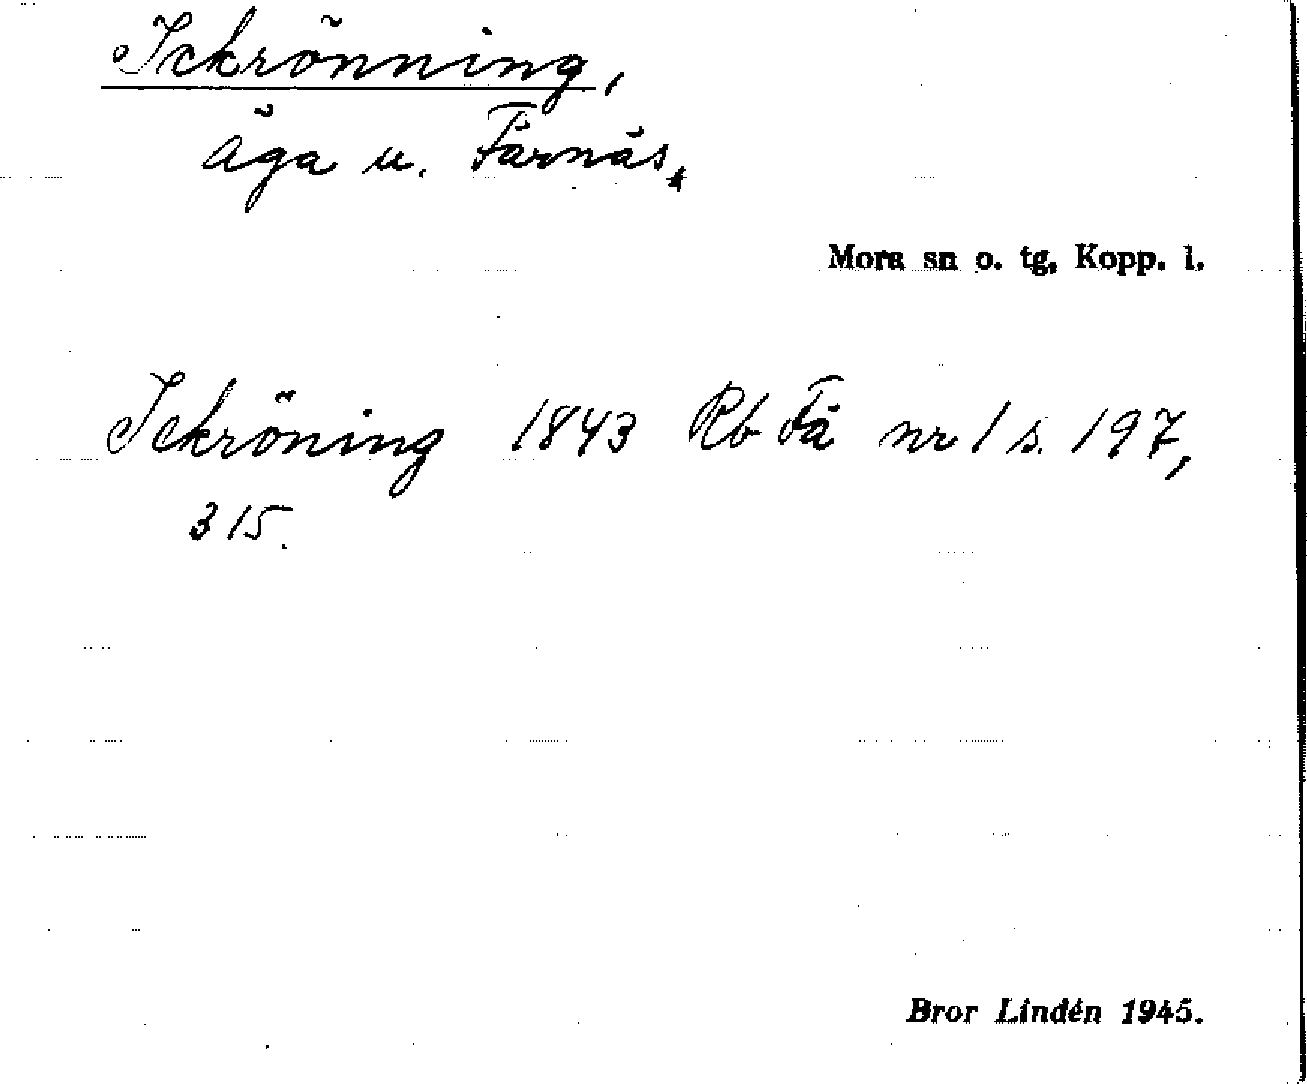 Ickrönning,
äga u. Färnäs,
Mora sn o. tg, Kopp. l.
Ickröning 1843 Rb Fä nr 1 s. 197,
315.
Bror Lindén 1945.